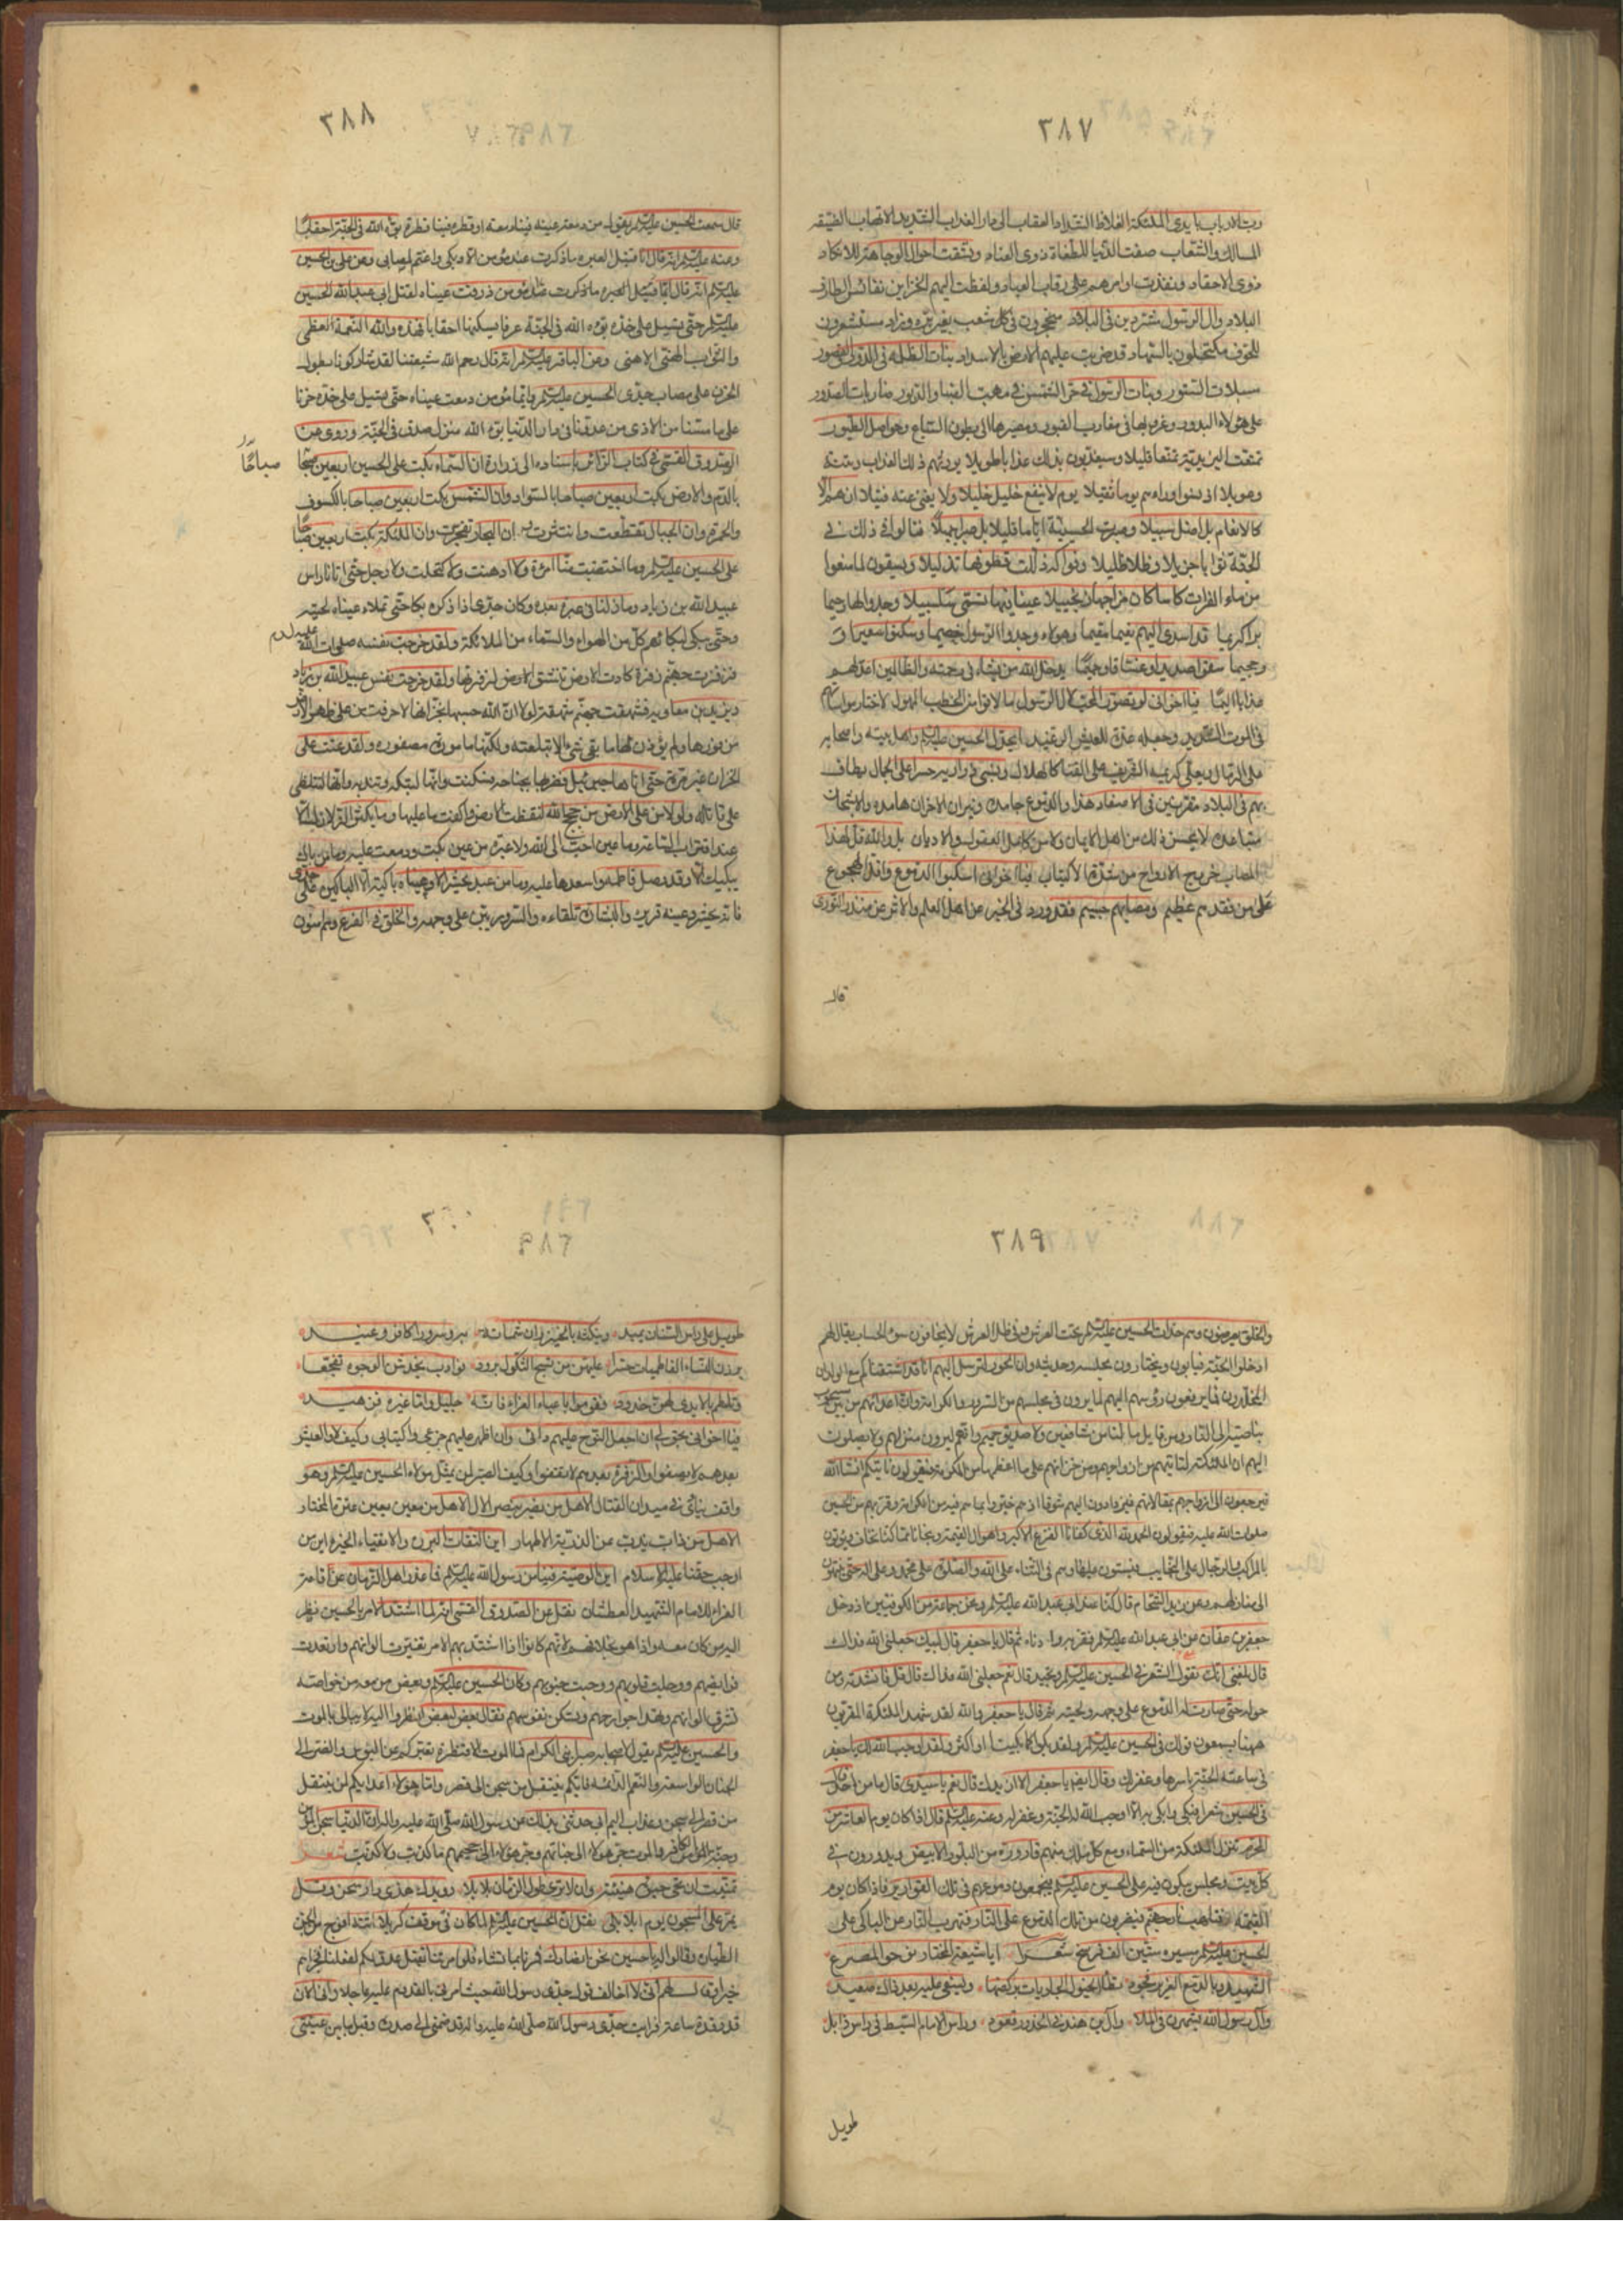 ٣٨٧
المسالك والشعاب صفت الدنيا للطغاة ذوي العناد
ذوي الاحقاد ونفذت اوامرهم على رقاب العباد ولفظت اليهم الخزاين نفائس الطارف
البلاد وال الرسول مشتردين في البلاد في كل شعب
للخوف مكتحلون بالسهاد قد ضربت عليهم الارض بالاسداد بنات
مسبلات الستور وبنات الرسول في حر الشمس في مهب الصبا والدبور
على هؤلاء البدور وغروبها في مغارب القبور ومصيرها الى بطون السباع وحواصل الطيور
وراءهم يوما ثقيلا يوم لا ينفع خليل خليلا ولا يغني عنه فتيلا ان هم الا
كالانعام بل اضل سبيلا وصبرت الحسينية اياما قليلا بل صبرا جميلا فنالوا في ذلك في
الجنة ثوابا جزيلا وظلا ظليلا وفواكه ذللت قطوفها تذليلا ويسقون لما منعوا
من ماء الفرات كاسا كان مزاجها زنجبيلا عينا فيها تسمى سلسبيلا وجدوا لها رحيما
وحميما سقوا صديدا وغساقا يدخل الله من يشاء في رحمته والظالمين اعد لهم
عذابا اليما فيا اخواني لو تصور المحب لال الرسول ما لاقوا من الخطب المهول لاختار مواساتهم
الحسين عليه السلام واهل بيته واصحابه
على الرمال ويعلى كريمه الشريف على القنا كالهلال
بهم في البلاد مقرنين في الاصفاد هذا والدموع جامدة ونيران الاحزان هامدة والاشجان
متباعدة لا يحسن ذلك من اهل الايمان ولا من كامل العقول والاديان بل والله قل لهذا
المصاب خروج الارواح من شدة الاكتياب فيا اخواني اسكبوا الدموع واقلوا الهجوع
على من فقدهم عظيم ومصابهم جسيم فقد ورد في الخبر عن اهل العلم والاثر عن منذر الثوري
قال
٣٨٨
قال سمعت الحسين عليه السلام يقول من دمعت عينه فينا دمعة او قطرت فينا قطرة بوءه الله في الجنة احقابا
وعنه عليه السلام انه قال انا قتيل العبرة ما ذكرت عند مؤمن الا وبكى واغتم لمصابي وعن علي بن الحسين
عليه السلام انه قال ايما مؤمن ذرفت عيناه لقتل ابي عبد الله الحسين
عليه السلام حتى يسيل على خده بوءه الله في الجنة غرفا يسكنها احقابا فهذه والله النعمة العظمى
والثواب الهني الاهنى وعن الباقر عليه السلام انه قال رحم الله شيعتنا لقد شاركونا بطول
الحزن على مصاب جدي الحسين عليه السلام وايما مؤمن دمعت عيناه حتى يسيل على خده حزنا
على ما مسنا من الاذى من عدونا في دار الدنيا بوءه الله منزل صدق في الجنة وروي عن
الصدوق القمي في كتاب باسناده الى زرارة ان السماء بكت على الحسين اربعين صباحا
صباحًا
بالدم والارض بكت اربعين صباحا بالسواد وان الشمس بكت اربعين صباحا بالكسوف
والحمرة وان الجبال تقطعت وانتثرت وان البحار تفجرت وان الملائكة بكت اربعين صباحا
على الحسين عليه السلام وما اختضبت منا امرأة ولا ادهنت ولا اكتحلت ولا رجل حتى اتانا راس
عبيد الله بن زياد وما زلنا في عبرة بعده وكان جدي اذا ذكره بكا حتى تملاء عيناه لحيته
وحتى يبكي لبكائه كل من الهواء والسماء من الملائكة ولقد خرجت نفسه صلوات الله عليه
فزفرت جهنم زفرة كادت الارض تنشق لزفرتها ولقد خرجت نفس عبيد الله بن زياد
ويزيد بن معاوية فشهقت جهنم شهقة لولا ان الله حبسها بخزانها لاحرقت من على ظهر الارض
من فورها ولو يؤذن لها ما بقي شيء الا ابتلعته ولكنها مامورة مصفودة ولقد عتت على
الخزان غير مرة حتى اتاها جبرئيل فضربها بجناحه فسكنت وانها لتبكيه وتندبه وانها لتتلظى
على قاتله ولولا من على الارض من حجج الله لنفضت الارض واكفت ما عليها وما يكثر الزلازل الا
عند اقتراب الساعة وما عين احب الى الله ولا عبرة من عين بكت ودمعت عليه وما من باك
يبكيه الا وقد وصل فاطمة واسعدها عليه وما من عبد يحشر الا وعيناه باكية الا الباكين على جدي
فانه يحشر وعينه قريرة والبشارة تلقاءه والسرور بين على وجهه والخلق في الفزع وهم امنون
٣٨٩
والخلق يعرضون وهم حداث الحسين عليه السلام تحت العرش وفي ظل العرش لا يخافون سوء الحساب يقال لهم
ادخلوا الجنة فيأبون ويختارون مجلسه وحديثه وان الحور لترسل اليهم انا قد اشتقناكم مع الولدان
المخلدون فما يرفعون رؤسهم اليهم لما يرون في مجلسهم من السرور والكرامة وان اعدائهم من بين مسحوب
بناصيته الى النار ومن قايل ما لنا من شافعين ولا صديق حميم وانهم ليرون منزلهم ولا يصلون
اليهم ان الملائكة لتاتيهم من ازواجهم ومن خزانهم على ما اعطوا من الكرامة فيقولون ناتيكم انشاالله
فيرجعون الى ازواجهم بمقالاتهم فيزدادون اليهم شوقا اذ هم خبروا بما هم فيه من الكرامة وقربهم من الحسين
صلوات الله عليه فيقولون الحمد لله الذي كفانا الفزع الاكبر واهوال القيمة ونجانا مما كنا نخاف ويؤتون
بالمراكب والرحال على النجايب فيستوون عليها وهم في الثناء على الله والصلوة على محمد وعلى اله حتى ينتهون
الى منازلهم وعن زيد الشحام قال كنا عند ابي عبد الله عليه السلام ونحن جماعة من الكوفيين اذ دخل
جعفر بن عفان على ابي عبد الله عليه السلام فقربه وادناه ثم قال يا جعفر قال لبيك جعلني الله فداك
قال بلغني انك تقول الشعر في الحسين عليه السلام وتجيد قال نعم جعلني الله فداك قال قل فانشده ومن
حوله حتى صارت له الدموع على وجهه ولحيته ثم قال يا جعفر والله لقد شهد الملائكة المقربون
ههنا يسمعون قولك في الحسين عليه السلام ولقد بكوا كما بكينا او اكثر ولقد اوجب الله لك يا جعفر
في ساعته الجنة باسرها وغفر لك وقال ايضا يا جعفر الا ازيدك قال نعم يا سيدي قال ما من احد قال
في الحسين شعرا فبكى وابكى به الا اوجب الله له الجنة وغفر له وعنه عليه السلام قال اذا كان يوم العاشر من
المحرم تنزل الملائكة من السماء ومع كل ملك منهم قارورة من البلور الابيض ويدورون في
كل بيت ومجلس يبكون فيه على الحسين عليه السلام فيجمعون دموعهم في تلك القوارير فاذا كان يوم
القيمة فتلهب نار جهنم فيضربون من تلك الدموع على النار فتهرب النار عن الباكي على
الحسين عليه السلام مسيرة ستين الف فرسخ شعرا ايا شيعة المختار نوحوا لمصرع
الشهيد وبالدمع الغزير فجودوا تطأه الخيول الجاريات بركضها
وال رسول الله يشهرن في الملا وال هند في الخدور قعود وراس الامام السبط في راس ذابل
طويل
٣٨٩
طويل على راس السنان يميد وينكثه بالخيزران شماتة به وسرورا كافر وعنيد
يرزن النساء الفاطميات حسرا عليهن من نسج الثكول برود
وتلطم بالايدي لهن خدود فقوموا باعباء العزاء فانه جليل واما غيره فزهيد
فيا اخواني يحق لي ان اجعل النوح عليهم دأبي وان اظهر عليهم جزعي واكتيابي وكيف لا والعيش
بعدهم لا يصفو والزفرة بعدهم لا تقنفوا وكيف الصبر لمن يمثل مولاه الحسين عليه السلام وهو
واقف ينادي في ميدان القتال الا هل من نصير ينصر الال الا هل من معين يعين عترة المختار
الا هل من ذاب يذب عن الذرية الاطهار اين الثقات البررة والاتقياء الخيرة اين من
اوجب حقنا عليه الاسلام اين الوصية فينا من رسول الله عليه السلام
العزاء للامام الشهيد العطشان نقل عن الصدوق القمي انه لما اشتد الامر بالحسين نظر
اليه من كان معه واذا هو بخلافهم لانهم كانوا اذا اشتد بهم الامر تغيرت الوانهم وارتعدت
فرايصهم ووجلت قلوبهم ووجبت جنوبهم وكان الحسين عليه السلام وبعض من معه من خواصه
تشرق الوانهم وتهدا جوارحهم وتسكن نفوسهم فقال بعض لبعض انظروا اليه لا يبالي بالموت
والحسين عليه السلام يقول لاصحابه صبرا بني الكرام فما الموت الا قنطرة تعبر بكم عن البؤس والضر الى
الجنان الواسعة والنعم الدائمة فايكم ينتقل من سجن الى قصر واما هؤلاء اعدائكم لمن ينتقل
من قصر الى سجن وعذاب اليم ابي حدثني بذلك عن رسول الله صلى الله عليه واله ان الدنيا سجن المؤمن
وجنة الكافر والموت جسر هؤلاء الى جناتهم وجسر هؤلاء الى جحيمهم ما كذبت ولا كذبت شعر
يمر على المسجون يوم بلا بلا نقل ان الحسين عليه السلام لما كان في موقف كربلا اتته افواج من الجن
الطيارة وقالوا له يا حسين نحن انصارك فمرنا بما تشاء فلو امرتنا بقتل عدو لكم لفعلنا فجزاهم
خيرا وقال لهم اني لا اخالف قول جدي رسول الله حيث امرني بالقدوم عليه عاجلا واني الان
قد رقدت ساعة فرايت جدي رسول الله صلى الله عليه واله قد ضمني الى صدره وقبل ما بين عيني